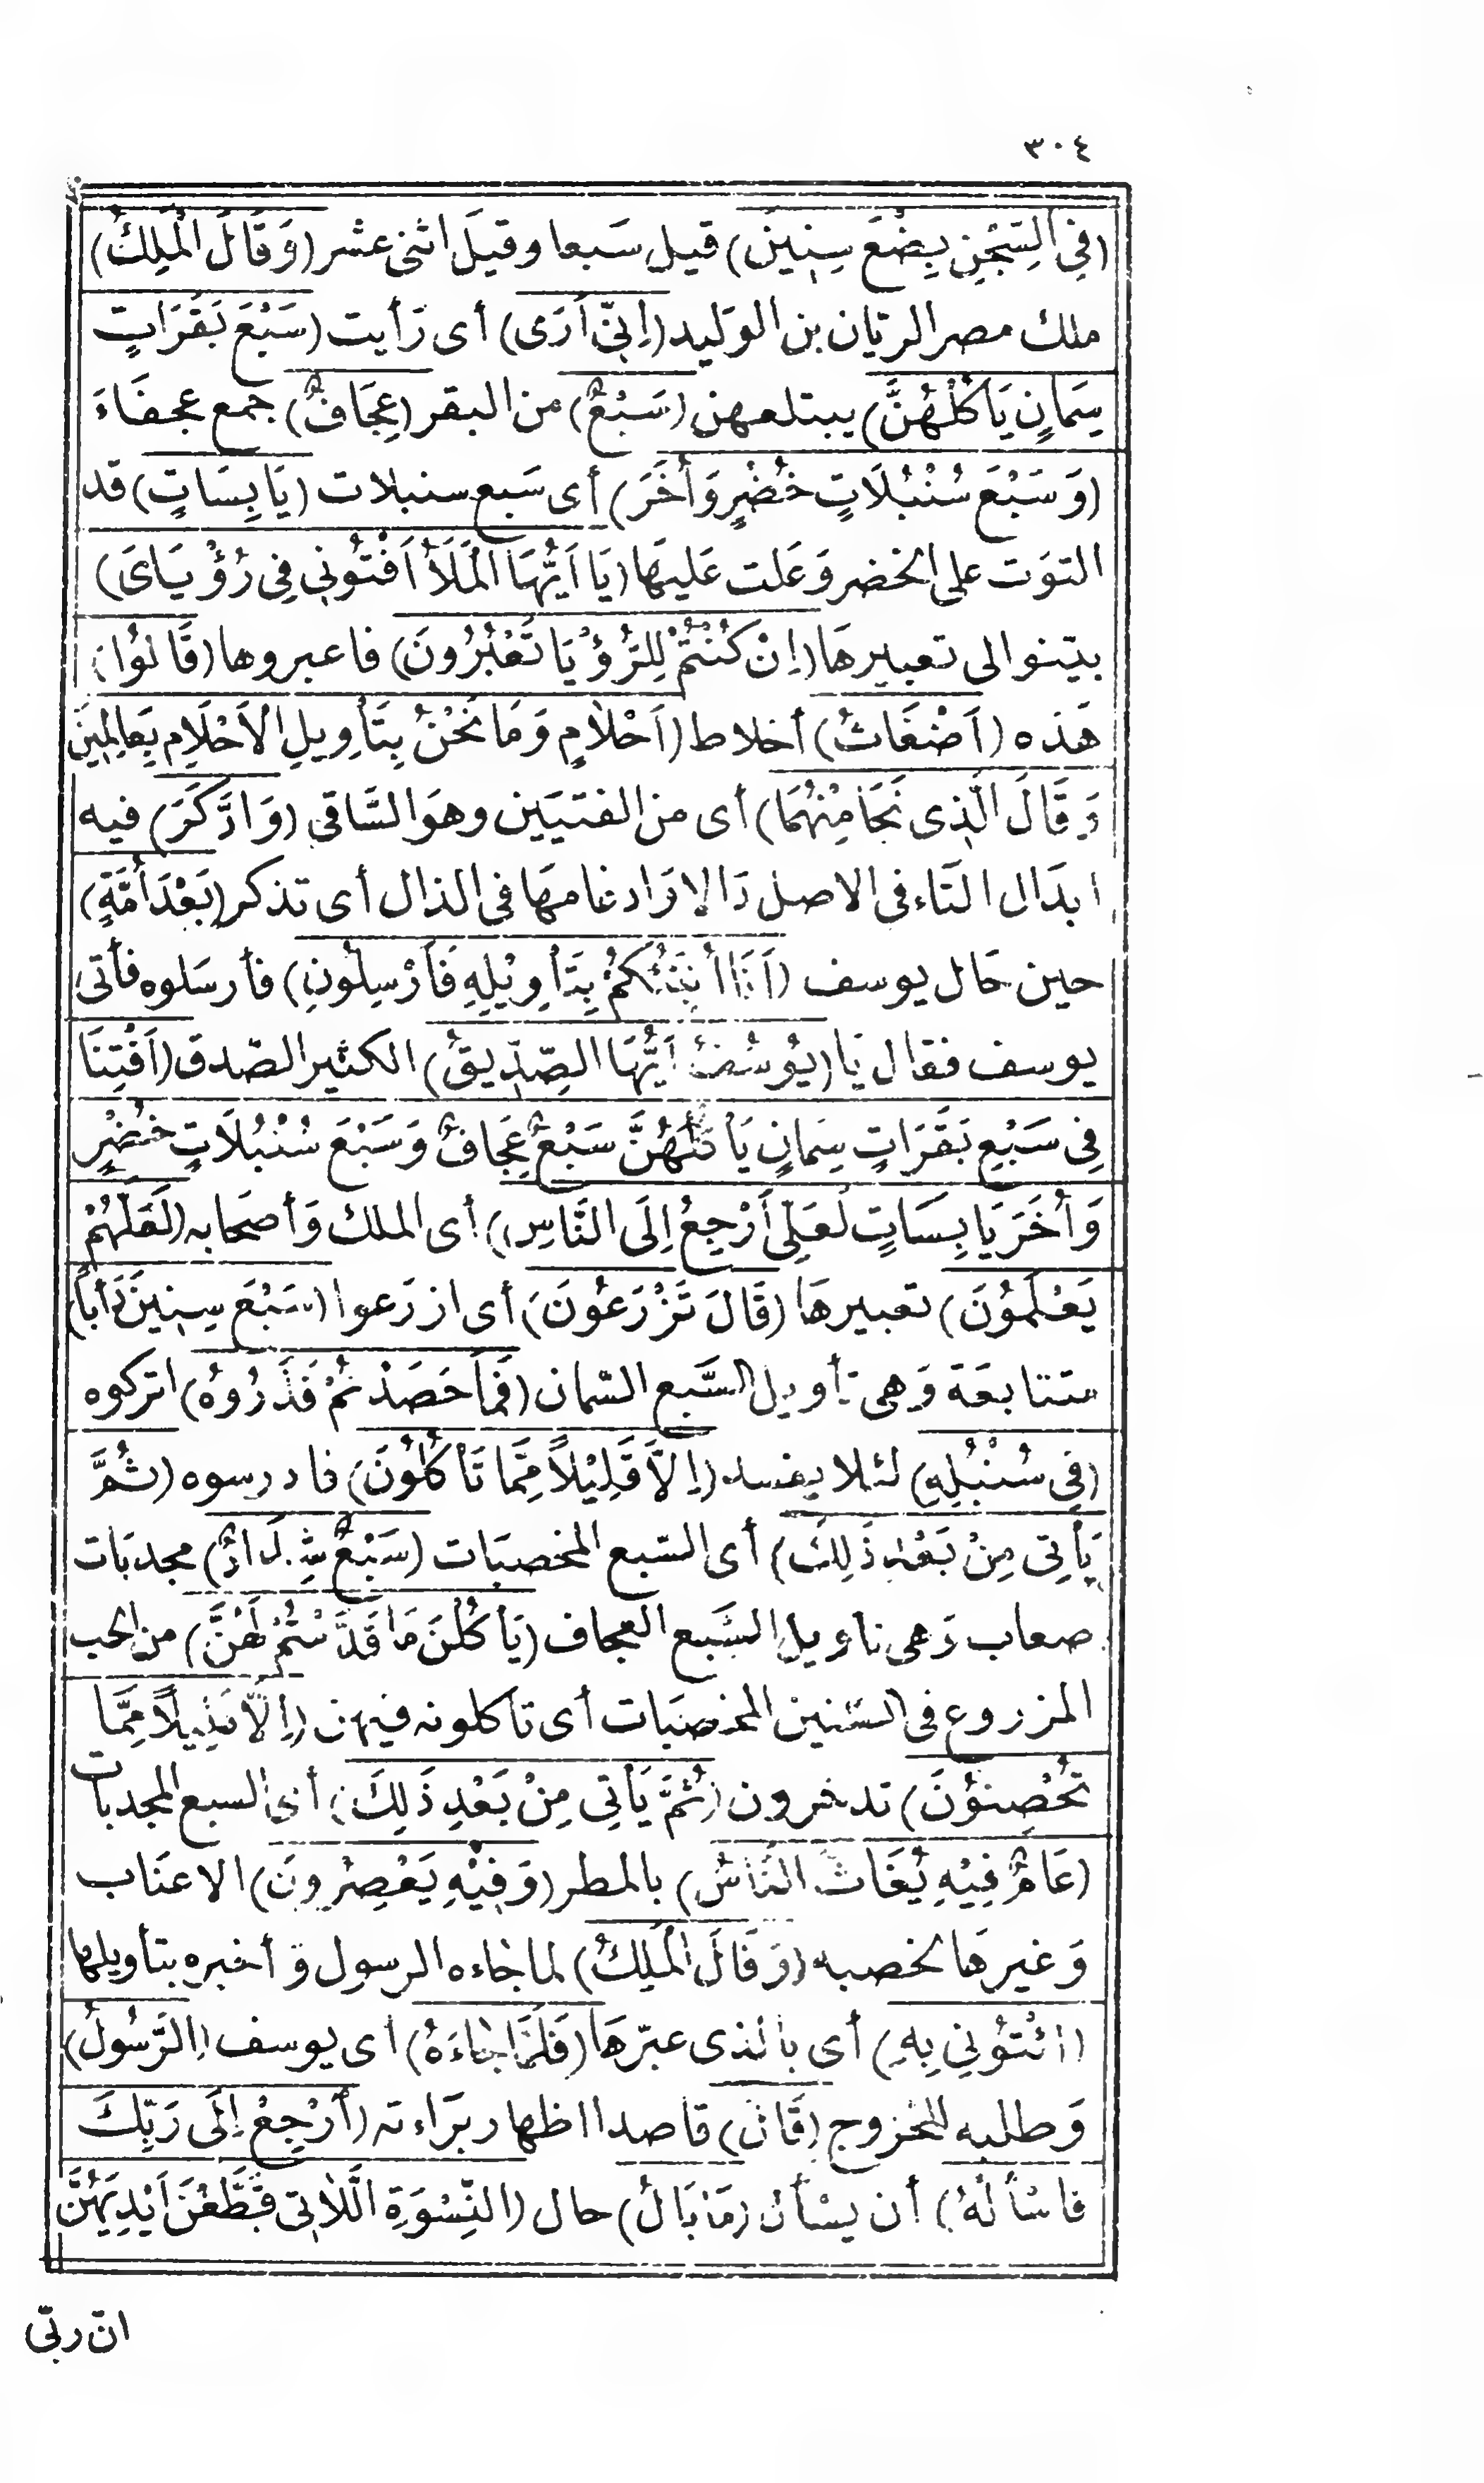 ٣٠٤
(فِى السِّجْنِ بِضْعَ سِنِينَ) قيل سَبعا وقيلَ اثنى عشر (وَقَالَ الْمَلِكُ)
ملك مصر الريّان بن الوَليد (اِنِّى اَرَى) أى رَأيت (سَبْعَ بَقَرَاتٍ
سِمَانٍ يَاْكُلُهُنَّ) يبتلعهن (سَبْعٌ) من البقر (عِجَافٌ) جمع عجفَاءَ
(وَسَبْعَ سُنْبُلَاتٍ خُضْرٍ وَأُخَرَ) أى سَبع سنبلات (يَابِسَاتٍ) قد
التوَت على الخضر وَعَلت عَليهَا (يَا اَيُّهَا الْمَلَأُ اَفْتُونِى فِى رُؤْيَاىَ)
بيّنوا لى تعبيرهَا (اِنْ كُنْتُمْ لِلرُّؤْيَا تَعْبُرُونَ) فاعبروها (قَالُوا)
هَذه (اَضْغَاثُ) أخلاط (اَحْلَامٍ وَمَا نَحْنُ بِتَأْوِيلِ الْاَحْلَامِ بِعَالِمِينَ
وَقَالَ الَّذِى نَجَا مِنْهُمَا) أى من الفتيَين وهوَ السَّاقى (وَادَّكَرَ) فيه
ابدَال التَاء فى الاصل دَالا وَادغامهَا فى الذال أى تذكر (بَعْدَ أُمَّةٍ)
حين حَال يوسف (اَنَا اُنَبِّئُكُمْ بِتَأْوِيْلِهِ فَاَرْسِلُونِ) فأرسَلوه فأتى
يوسف فقال يَا (يُوسُفُ اَيُّهَا الصِّدِّيقُ) الكثير الصّدق (اَفْتِنَا
فِى سَبْعِ بَقَرَاتٍ سِمَانٍ يَاْكُلُهُنَّ سَبْعٌ عِجَافٌ وَسَبْعَ سُنْبُلَاتٍ خُضْرٍ
وَأُخَرَ يَابِسَاتٍ لَعَلِّى أَرْجِعُ اِلَى النَّاسِ) أى الملك وَأصحَابه (لَعَلَّهُمْ
يَعْلَمُونَ) تعبيرهَا (قَالَ تَزْرَعُونَ) أى ازرَعوا (سَبْعَ سِنِينَ دَأَباً)
متتابعَة وَهى تأويل السَّبع السّمان (فَمَا حَصَدْتُمْ فَذَرُوهُ) اتركوه
(فِى سُنْبُلِهِ) لئلا يفسد (اِلاَّ قَلِيْلاً مِمَّا تَاْكُلُونَ) فادرسوه (ثُمَّ
يَأْتِى مِنْ بَعْدِ ذَلِكَ) أى السّبع المخصبَات (سَبْعٌ شِدَادٌ) مجدبَات
صعاب وَهى تاويل السَّبع العجاف (يَأْكُلْنَ مَا قَدَّمْتُمْ لَهُنَّ) من الحب
المزروع فى السّنين المخصبَات أى تأكلونه فيهن (اِلاَّ قَلِيلاً مِمَّا
تُحْصِنُونَ) تدخرون (ثُمَّ يَأْتِى مِنْ بَعْدِ ذَلِكَ) أى السبع المجدبات
(عَامٌ فِيْهِ يُغَاثُ النَّاسُ) بالمطر (وَفِيْهِ يَعْصِرُونَ) الاعنَاب
وَغيرهَا لخصبه (وَقَالَ الْمَلِكُ) لما جَاءه الرسول وَأخبره بتأويلها
(ائْتُونِى بِهِ) أى بالذى عبّرهَا (فَلَمَّا جَاءَهُ) أى يوسف (الرَّسُولُ)
وَطلبه للخروج (قَالَ) قاصدا اظهار برَاءته (اَرْجِعْ اِلَى رَبِّكَ
فاسْأَلْهُ) أن يسْأل (مَا بَالُ) حال (النِّسْوَةِ الَّلَاتِى قَطَّعْنَ اَيْدِيَهُنَّ
انّ ربّى